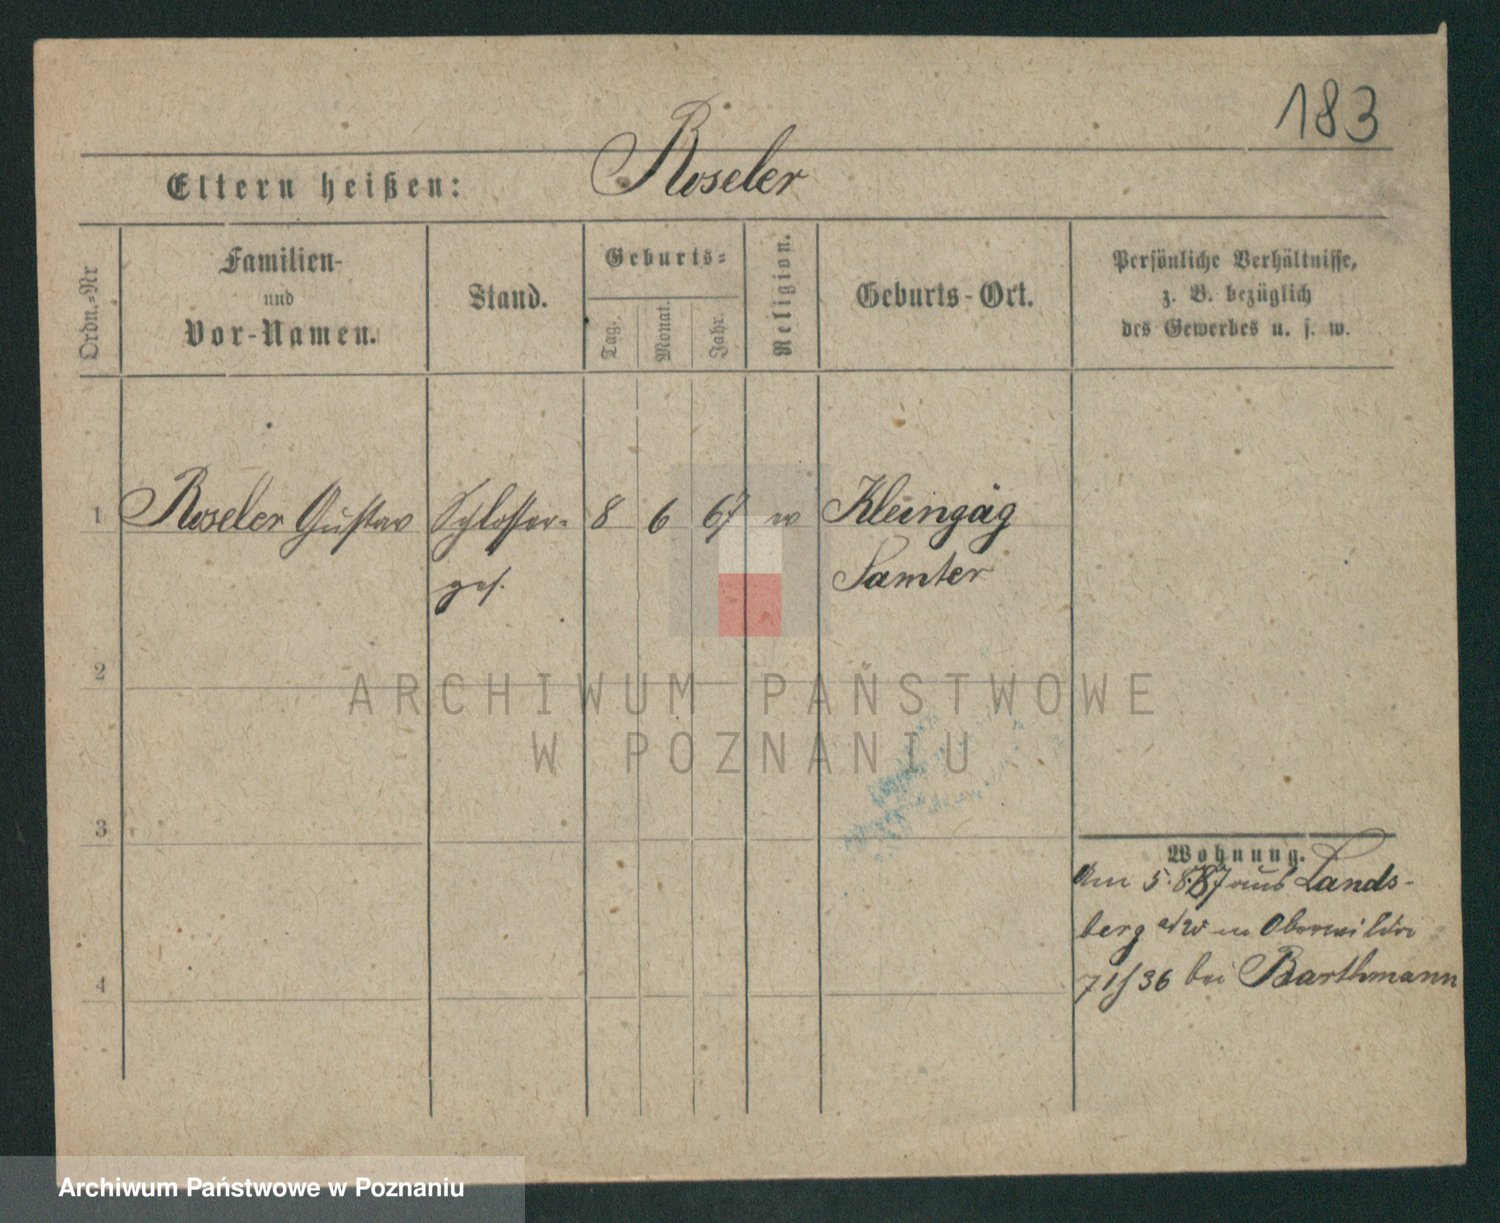 183
Eltern heißen: Roseler
Ordn.-Nr
Familien-
und
Vor-Namen.
Stand.
Geburts-
Tag.
Monat.
Jahr.
Religion.
Geburts-Ort.
Persönliche Verhältnisse,
z. B. bezüglich
des Gewerbes u. s. w.
1 Roseler Gustav Schlosser- 8 6 67 Kleingay
ges. Samter
2
3
4
Wohnung.
Am 5. 8. 87 aus Lands-
berg a/W Oberwilda
71/36 bei Barthmann
ARCHIWUM PAŃSTWOWE
W POZNANIU
Archiwum Państwowe w Poznaniu